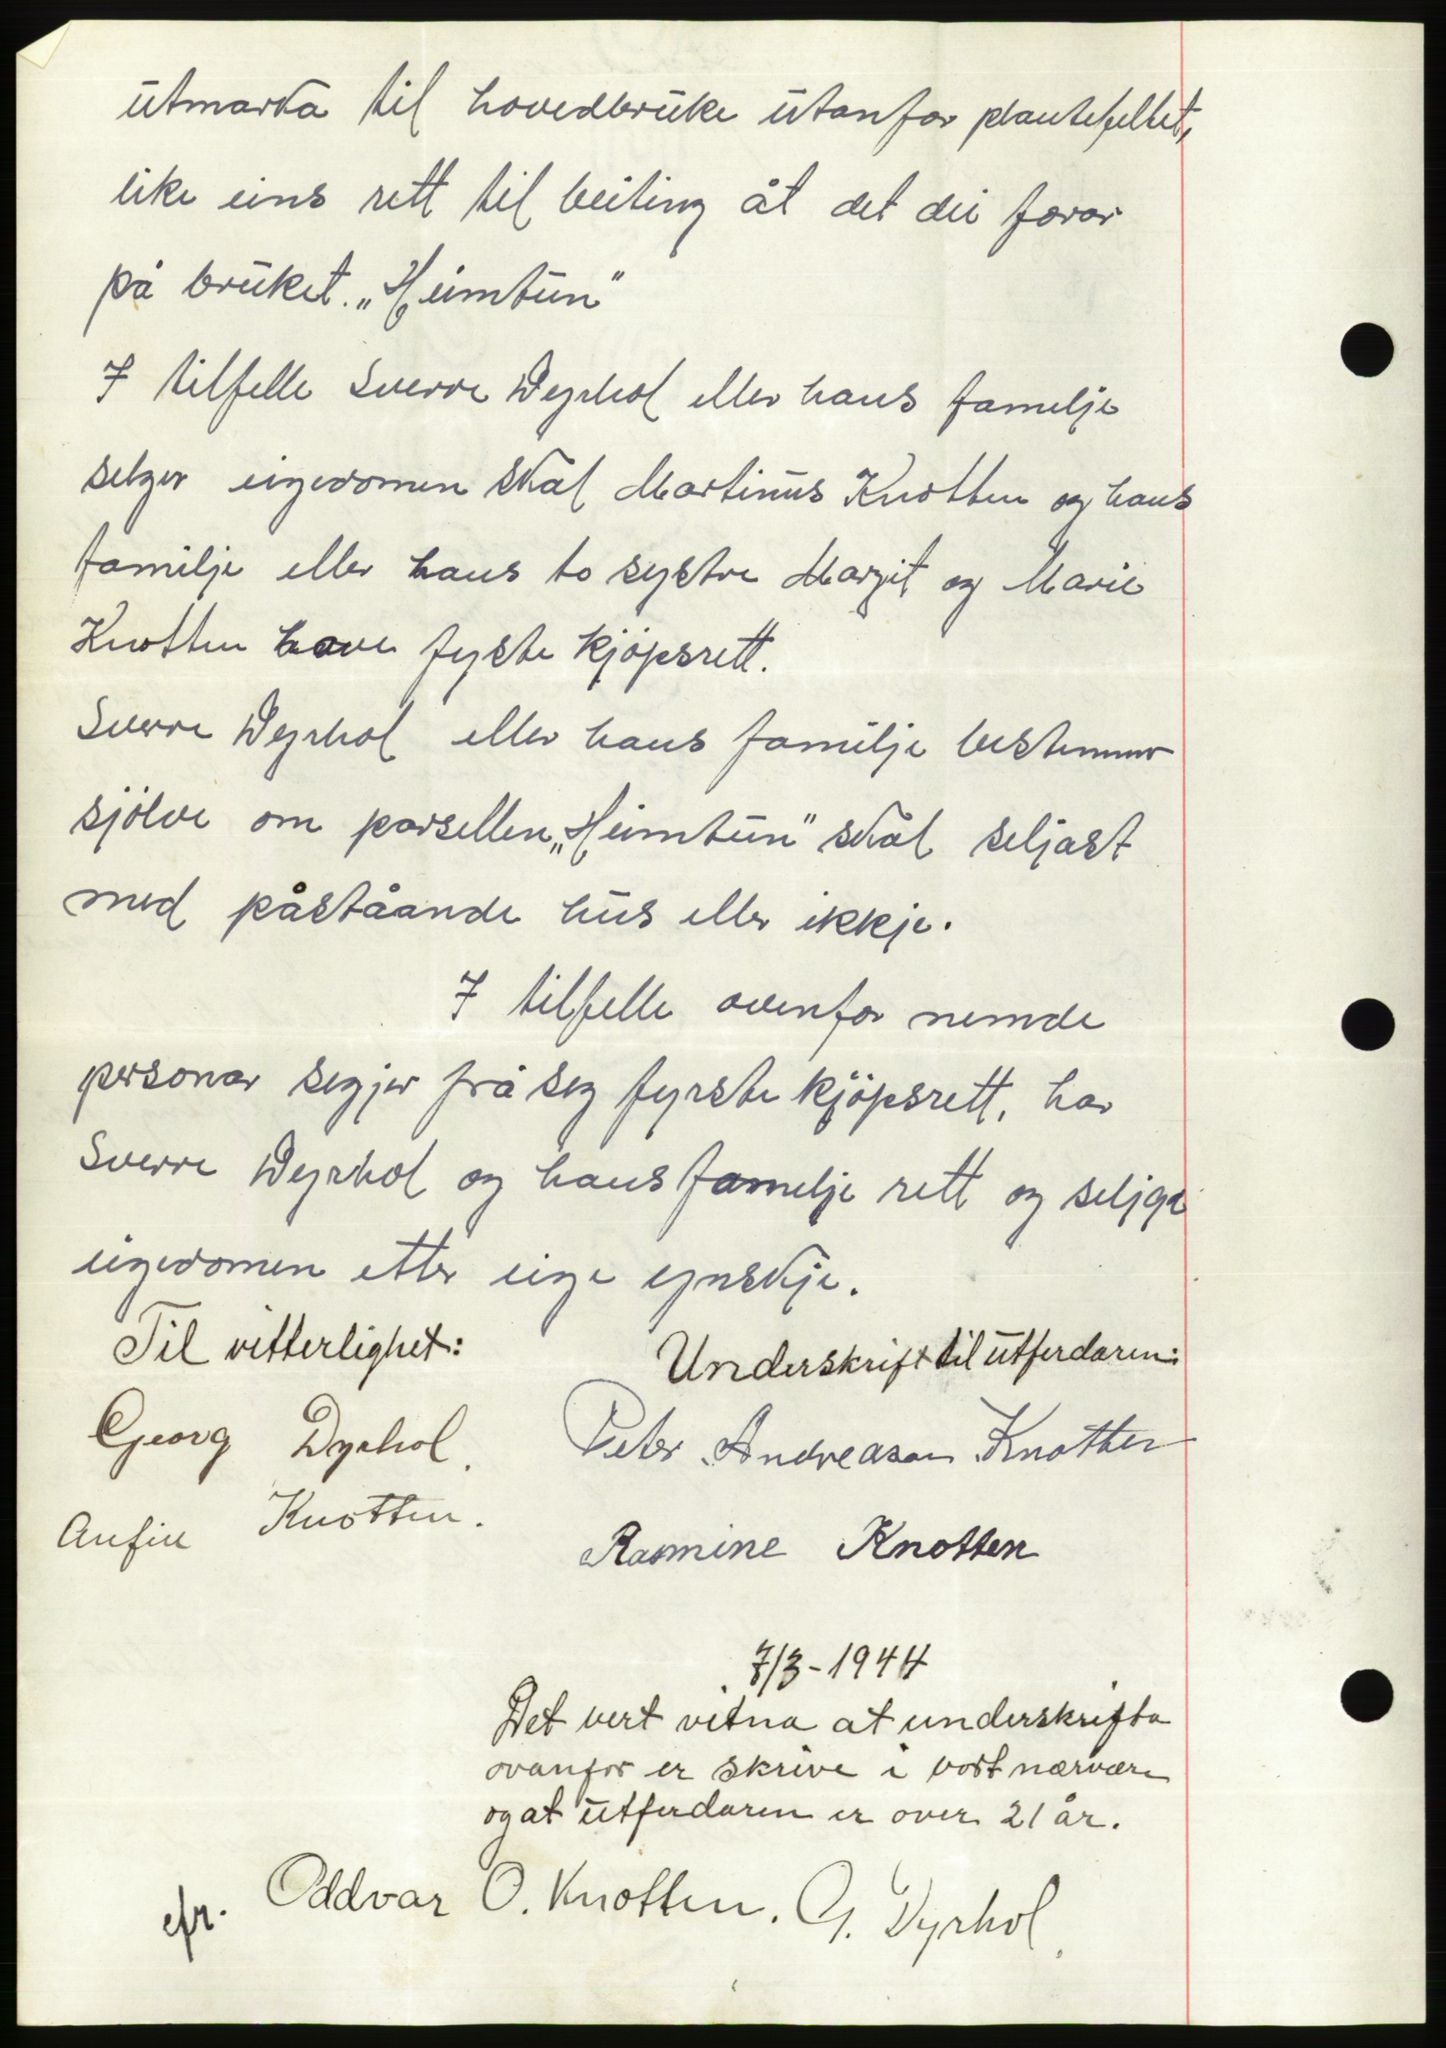 utmarka til hovedbruke utanfor plantefeltet,
like eins rett til beiting åt det dei forar
på bruket. „Heimtun"
I tilfelle Sverre Dyrhol eller hans familje
selger eigedomen skal Martinus Knotten og hans
familje eller hans to systre Margit og Marie
Knotten have fyste kjöpsrett.
Sverre Dyrhol eller hans familje bestemmer
sjölve om parsellen „Heimtun" skal seljast
med påståande hus eller ikkje.
I tilfelle ovenfor nemde
personar segjer frå seg fyrste kjöpsrett, har
Sverre Dyrhol og hans familje rett og seljga
eigedomen etter eige ynskje.
Til vitterlighet: Underskrift til utferdaren:
Georg Dyrhol. Peter Andreasen Knotten
Anfin Knotten. Rasmine Knotten
7/3-1944
Det vert vitna at underskrifta
ovanfor er skrive i vort nærvære
og at utferdaren er over 21 år.
efr. Oddvar O. Knotten. G. Dyrhol.